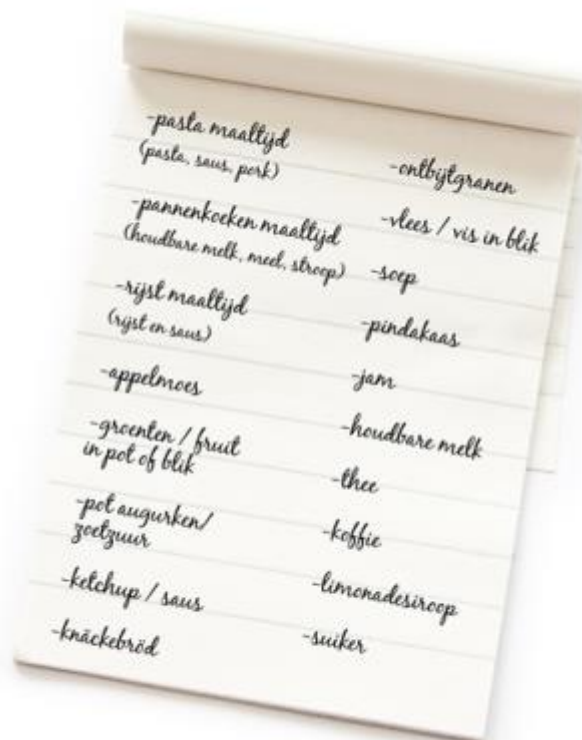 -pasta maaltijd
(pasta, saus, pork)
-pannenkoeken maaltijd
(houdbare melk, meel, stroop)
-rijst maaltijd
(rijst en saus)
-appelmoes
-groenten / fruit
in pot of blik
-pot augurken/
zoetzuur
-ketchup / saus
-knäckebröd
-ontbijtgranen
-vlees / vis in blik
-soep
-pindakaas
-jam
-houdbare melk
-thee
-koffie
-limonadesiroop
-suiker